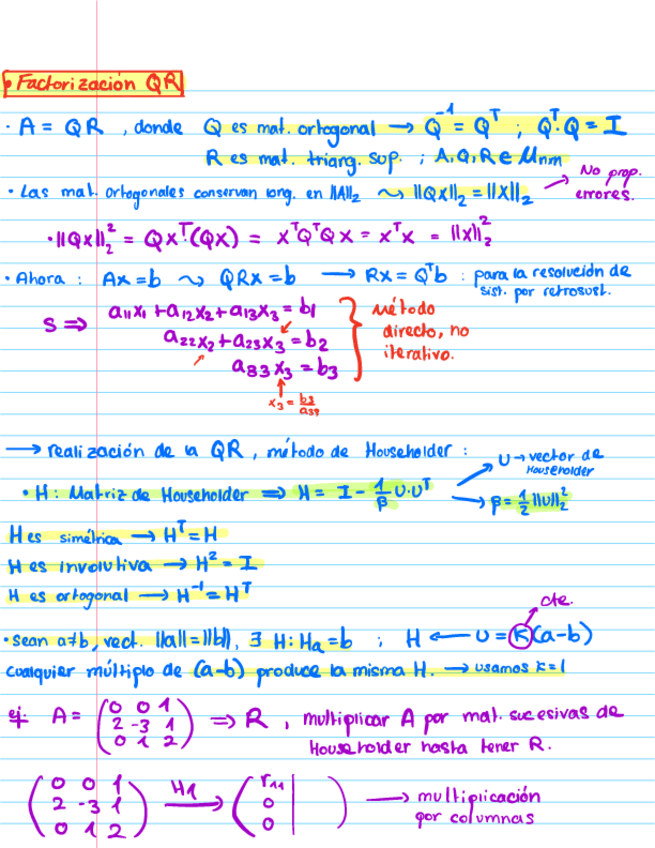 • Factorización QR
· A = QR , donde Q es mat. ortogonal → Q⁻¹ = Qᵀ ; Qᵀ·Q = I
R es mat. triang. sup. ; A,Q,R ∈ Mnm
• Las mat. ortogonales conservan long. en ||A||₂ ⤳ ||Qx||₂ = ||x||₂ → No prop. errores.
·||Qx||₂² = Qxᵀ·(Qx) = xᵀQᵀQx = xᵀx = ||x||₂²
• Ahora : Ax=b ⤳ QRx=b → Rx=Qᵀb : para la resolución de
sist. por retrosust.
S ⇒ a₁₁x₁ + a₁₂x₂ + a₁₃x₃ = b₁
a₂₂x₂ + a₂₃x₃ = b₂
a₃₃x₃ = b₃
} método
directo, no
iterativo.
x₃ = b₃/a₃₃
→ realización de la QR , método de Householder :
• H : Matriz de Householder ⇒ H = I - 1/β U·Uᵀ
U → vector de
Householder
β = 1/2 ||U||₂²
H es simétrica → Hᵀ = H
H es involutiva → H² = I
H es ortogonal → H⁻¹ = Hᵀ
cte.
• sean a≠b, vect. ||a|| = ||b||, ∃ H : Ha = b ; H ← U = K(a-b)
cualquier múltiplo de (a-b) produce la misma H. → usamos K=1
ej: A = (0 0 1
2 -3 1
0 1 2) ⇒ R , multiplicar A por mat. sucesivas de
Householder hasta tener R.
(0 0 1
2 -3 1
0 1 2) H1 → (r₁₁
0
0) → multiplicación
por columnas